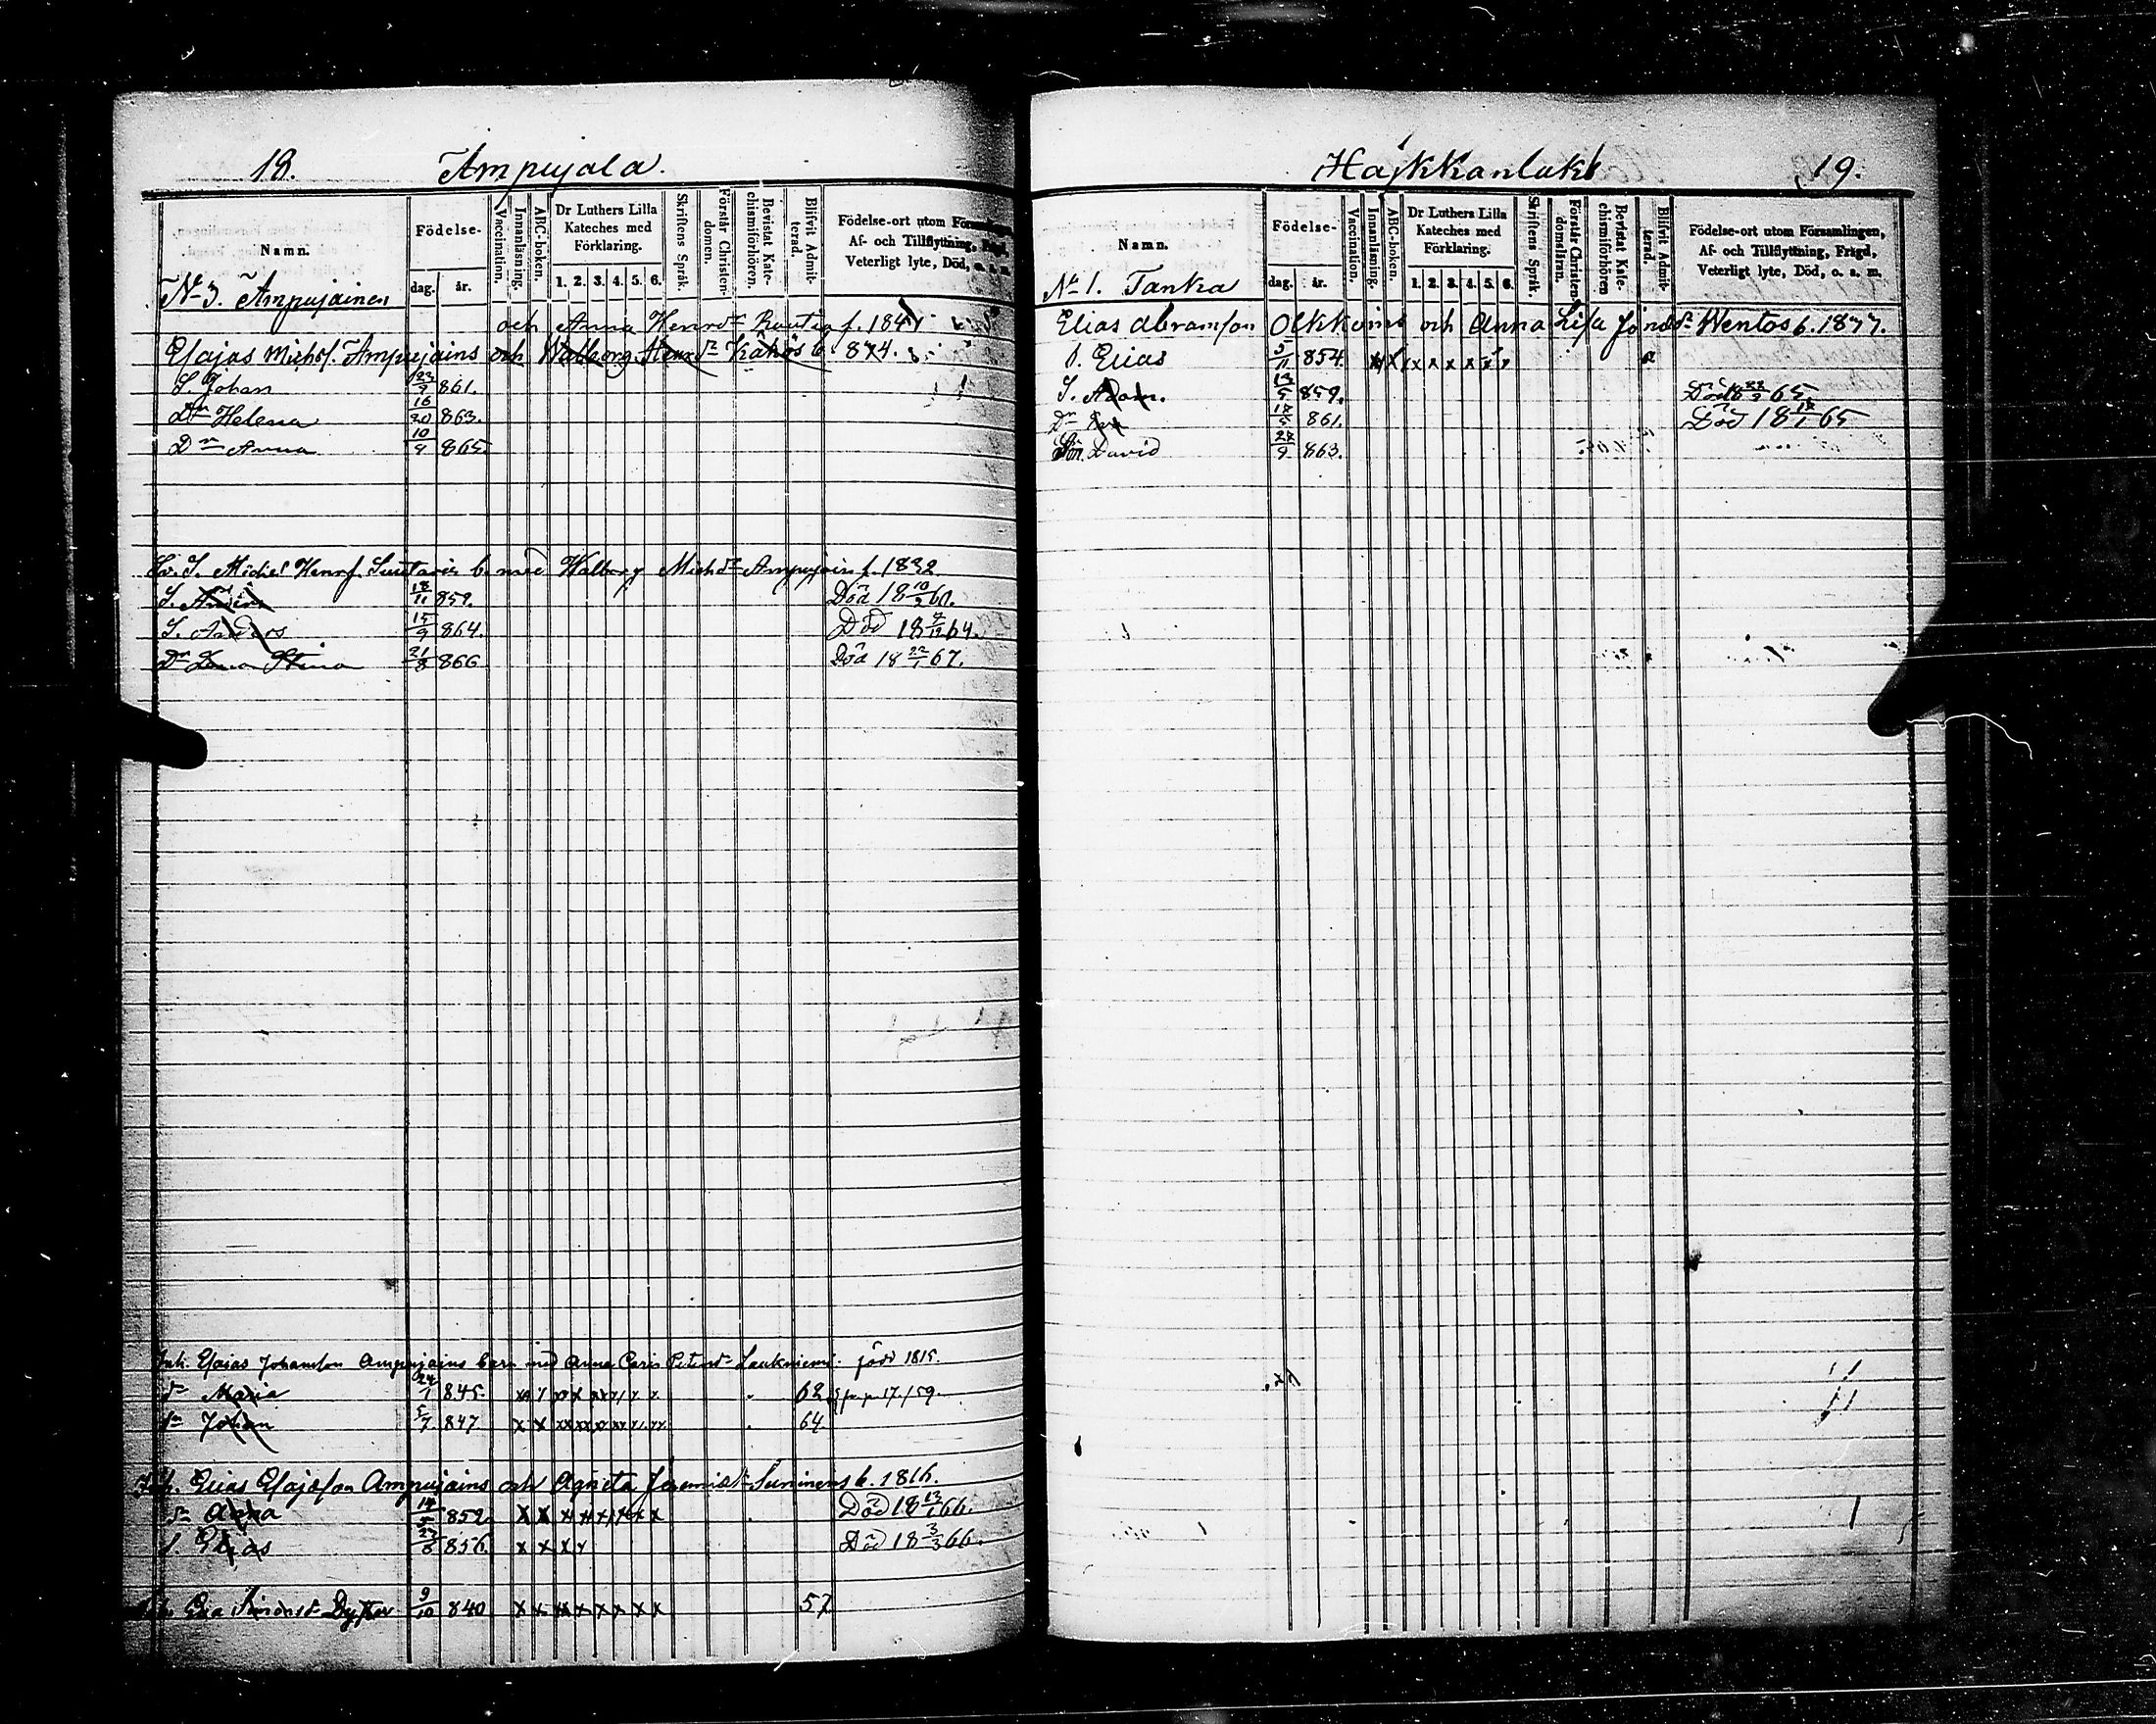 18. Ampujala.
Namn.
Födelse-
dag. år.
Vaccination.
Innanläsning.
ABC-boken.
Dr Luthers Lilla Kateches med Förklaring.
1. 2. 3. 4. 5. 6.
Skriftens Språk.
Förstår Christendomen.
Bevistat Katechismiförhören.
Blifvit Admitterad.
Födelse-ort utom Församlingen,
Af- och Tillflyttning, Frägd,
Veterligt lyte, Död, o. s. m.
No 3. Ampujainen
och Anna Henrdr Rautia f. 184
Esajas Michsf. Ampujains och Walborg Henrdr b. 874.
S. Johan 23/9 861.
Dr Helena 16/20 863.
Dr Anna 10/9 865.
S. Michel Henrf. b. med Walborg Michdr Ampujain f. 1832
S. 18/11 859. Död 18 10/2 61.
S. Anders 15/9 864. Död 18 64.
Dr Lena Stina 21/8 866 Död 18 22/1 67.
Inh. Esajas Johansson Ampujains barn med Anna Caris Petersdr Laukniemi. född 1815.
dr Maria 24/1 845. x x x x x x x x 62 17/59.
sn Johan 5/7 847. x x xx xx xx xx x xx 64
Inh. Elias Esajasson Ampujains och Agneta Jeremidr Suninens b. 1816.
Anna 14 852. x x x x x x x x Död 18 13/1 66.
s. Elias 23/8 856. x x x x Död 18 3/3 66.
Eva Simonsdr 9/10 840 x x x x x x x x 57
19.
Namn.
Födelse-
dag. år.
Vaccination.
Innanläsning.
ABC-boken.
Dr Luthers Lilla Kateches med Förklaring.
1. 2. 3. 4. 5. 6.
Skriftens Språk.
Förstår Christendomsläran.
Bevistat Katechismiförhören
Blifvit Admitterad.
Födelse-ort utom Församlingen,
Af- och Tillflyttning, Frägd,
Veterligt lyte, Död, o. s. m.
No 1. Tanka
Elias Abramsson Olkkoins och Anna Lisa Wentos b.
S. Elias 5/11 854. x x x x x x x x a
S. Adam. 13/5 859. Död 65
Dr Eva 17/5 861. Död 18 65
Son David 27/9 863.